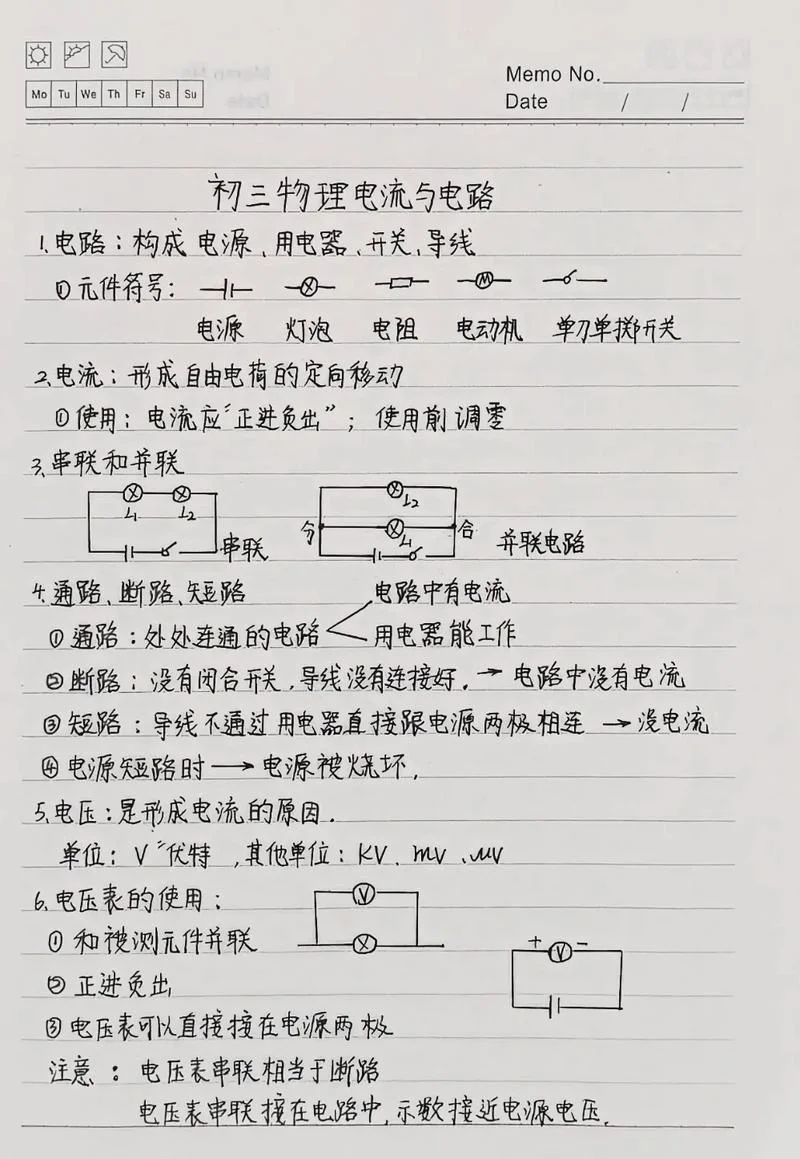 Mo Tu We Th Fr Sa Su
Memo No.
Date / /
初三物理电流与电路
1.电路：构成 电源、用电器、开关、导线
①元件符号：
M
电源 灯泡 电阻 电动机 单刀单掷开关
2.电流：形成自由电荷的定向移动
①使用：电流应“正进负出”；使用前调零
3.串联和并联
L1 L2 串联
L2
分 L1 合 并联电路
4.通路、断路、短路 电路中有电流
①通路：处处连通的电路 用电器能工作
②断路：没有闭合开关，导线没有连接好．→电路中没有电流
③短路：导线不通过用电器直接跟电源两极相连 →没电流
④电源短路时→电源被烧坏．
5.电压：是形成电流的原因．
单位：V“伏特，其他单位：KV、mV、μV
6.电压表的使用：
V
①和被测元件并联
+ V -
②正进负出
③电压表可以直接接在电源两极
注意：电压表串联相当于断路
电压表串联接在电路中，示数接近电源电压．